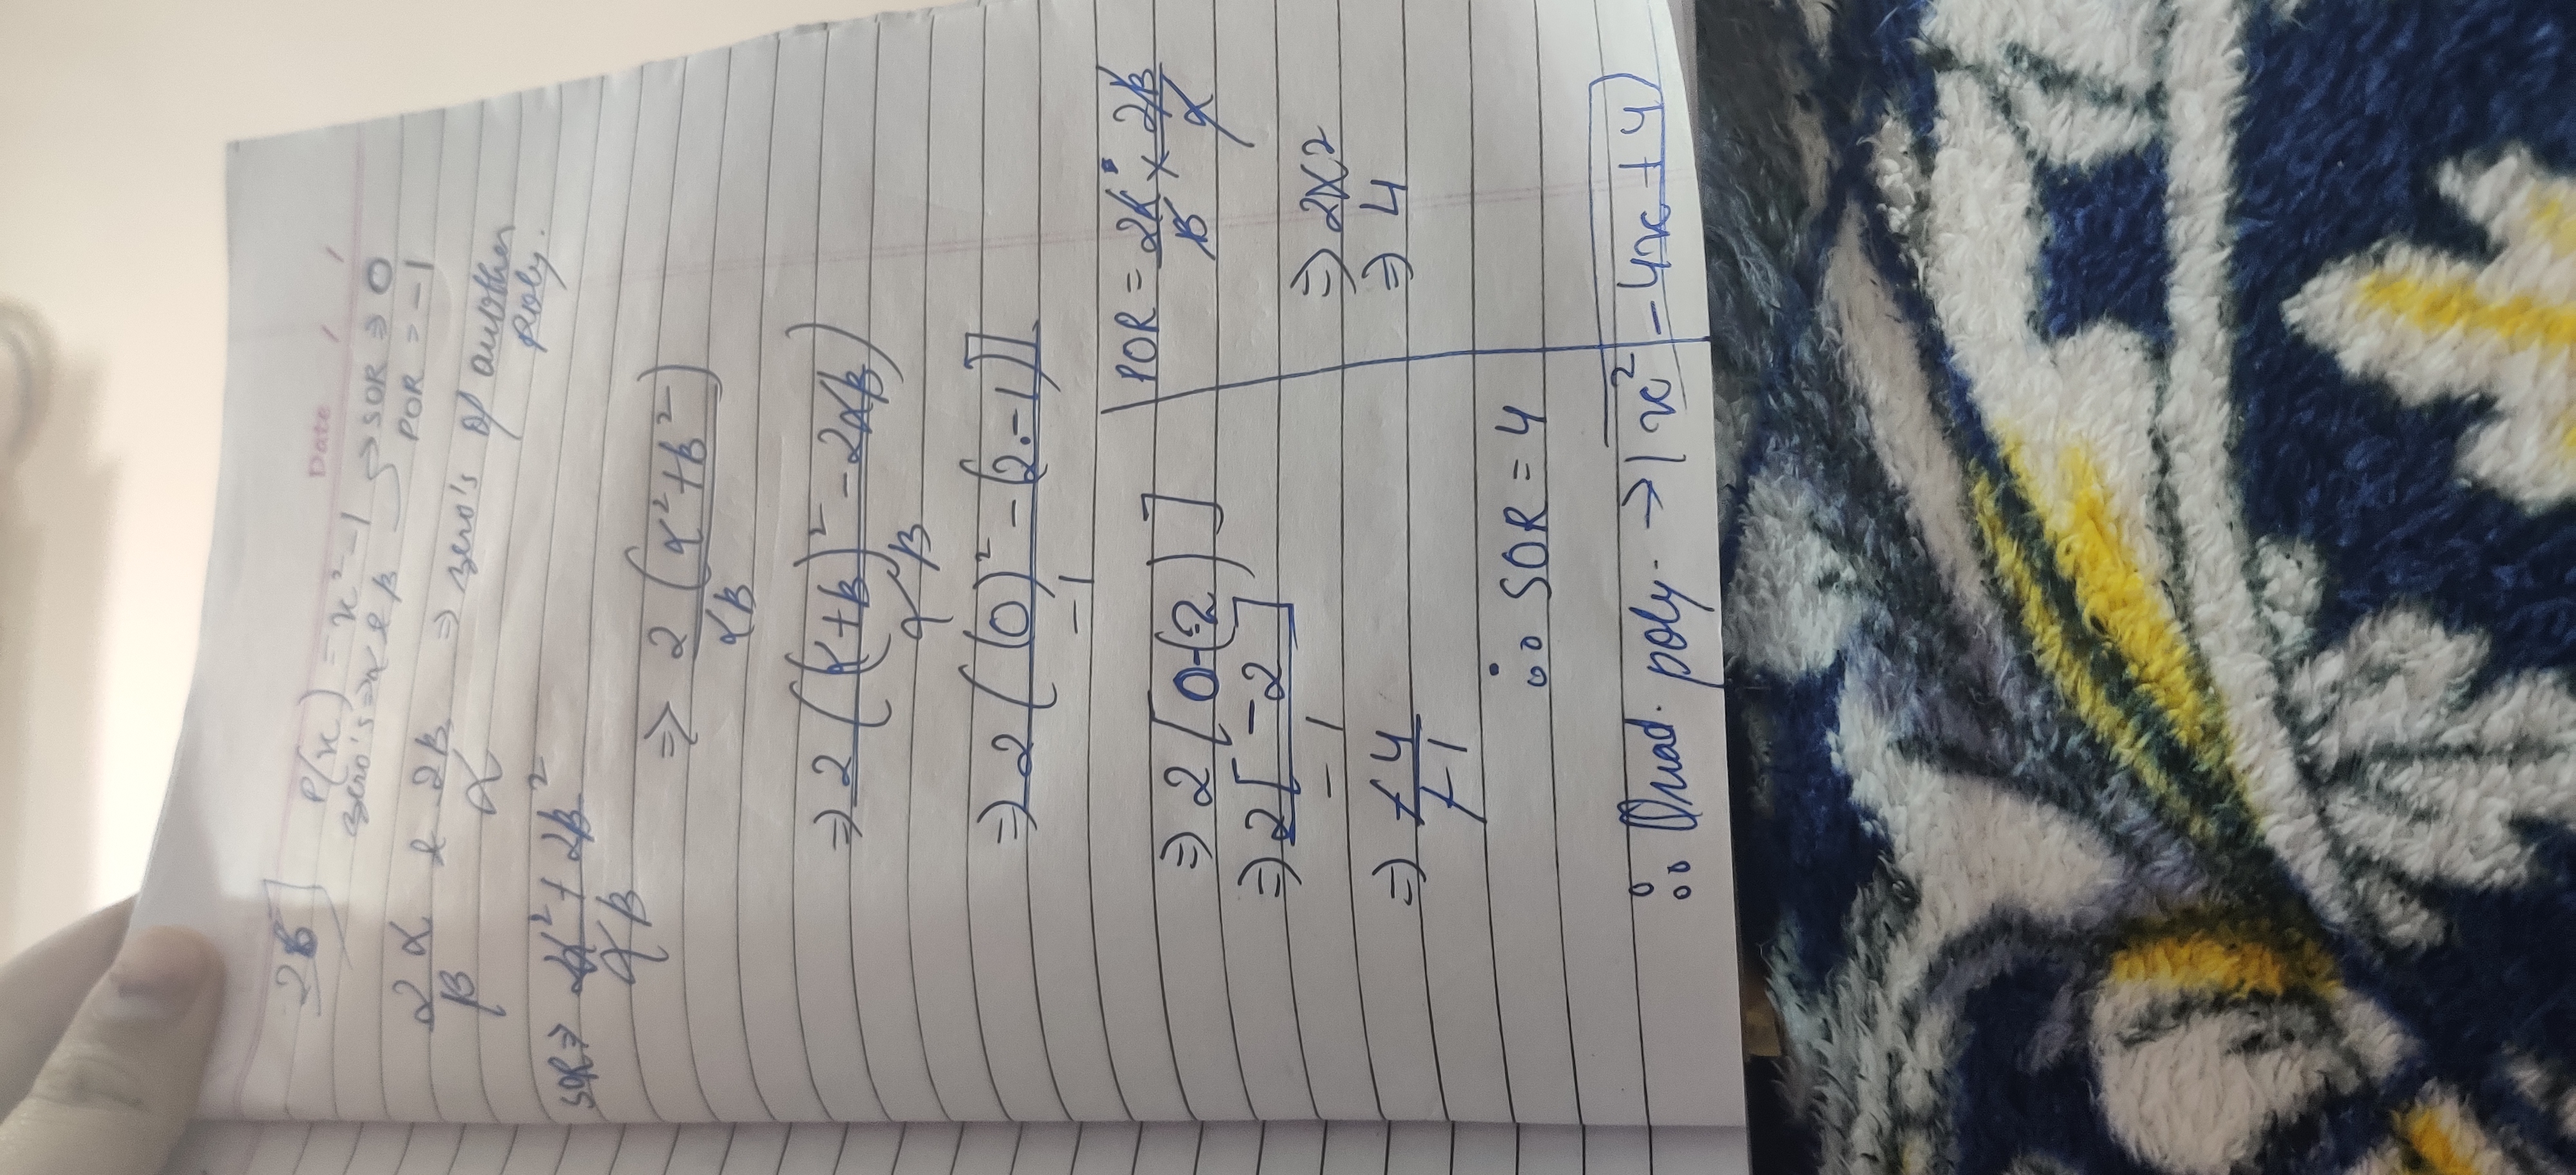 Date / /
26] P(x) = x² - 1 → SOR ⇒ 0
zero's = α & β → POR = -1
2α/β & 2β/α ⇒ zero's of another poly.
SOR ⇒ (2α² + 2β²)/αβ
⇒ 2(α² + β²)/αβ
⇒ 2((α+β)² - 2αβ)/αβ
⇒ 2((0)² - (2·-1)]/-1
⇒ 2[0-(-2)]
⇒ 2[-2]/-1
⇒ -4/-1
∴ SOR = 4
POR = 2α/β × 2β/α
⇒ 2×2
⇒ 4
∴ Quad. poly. → x² - 4x + 4